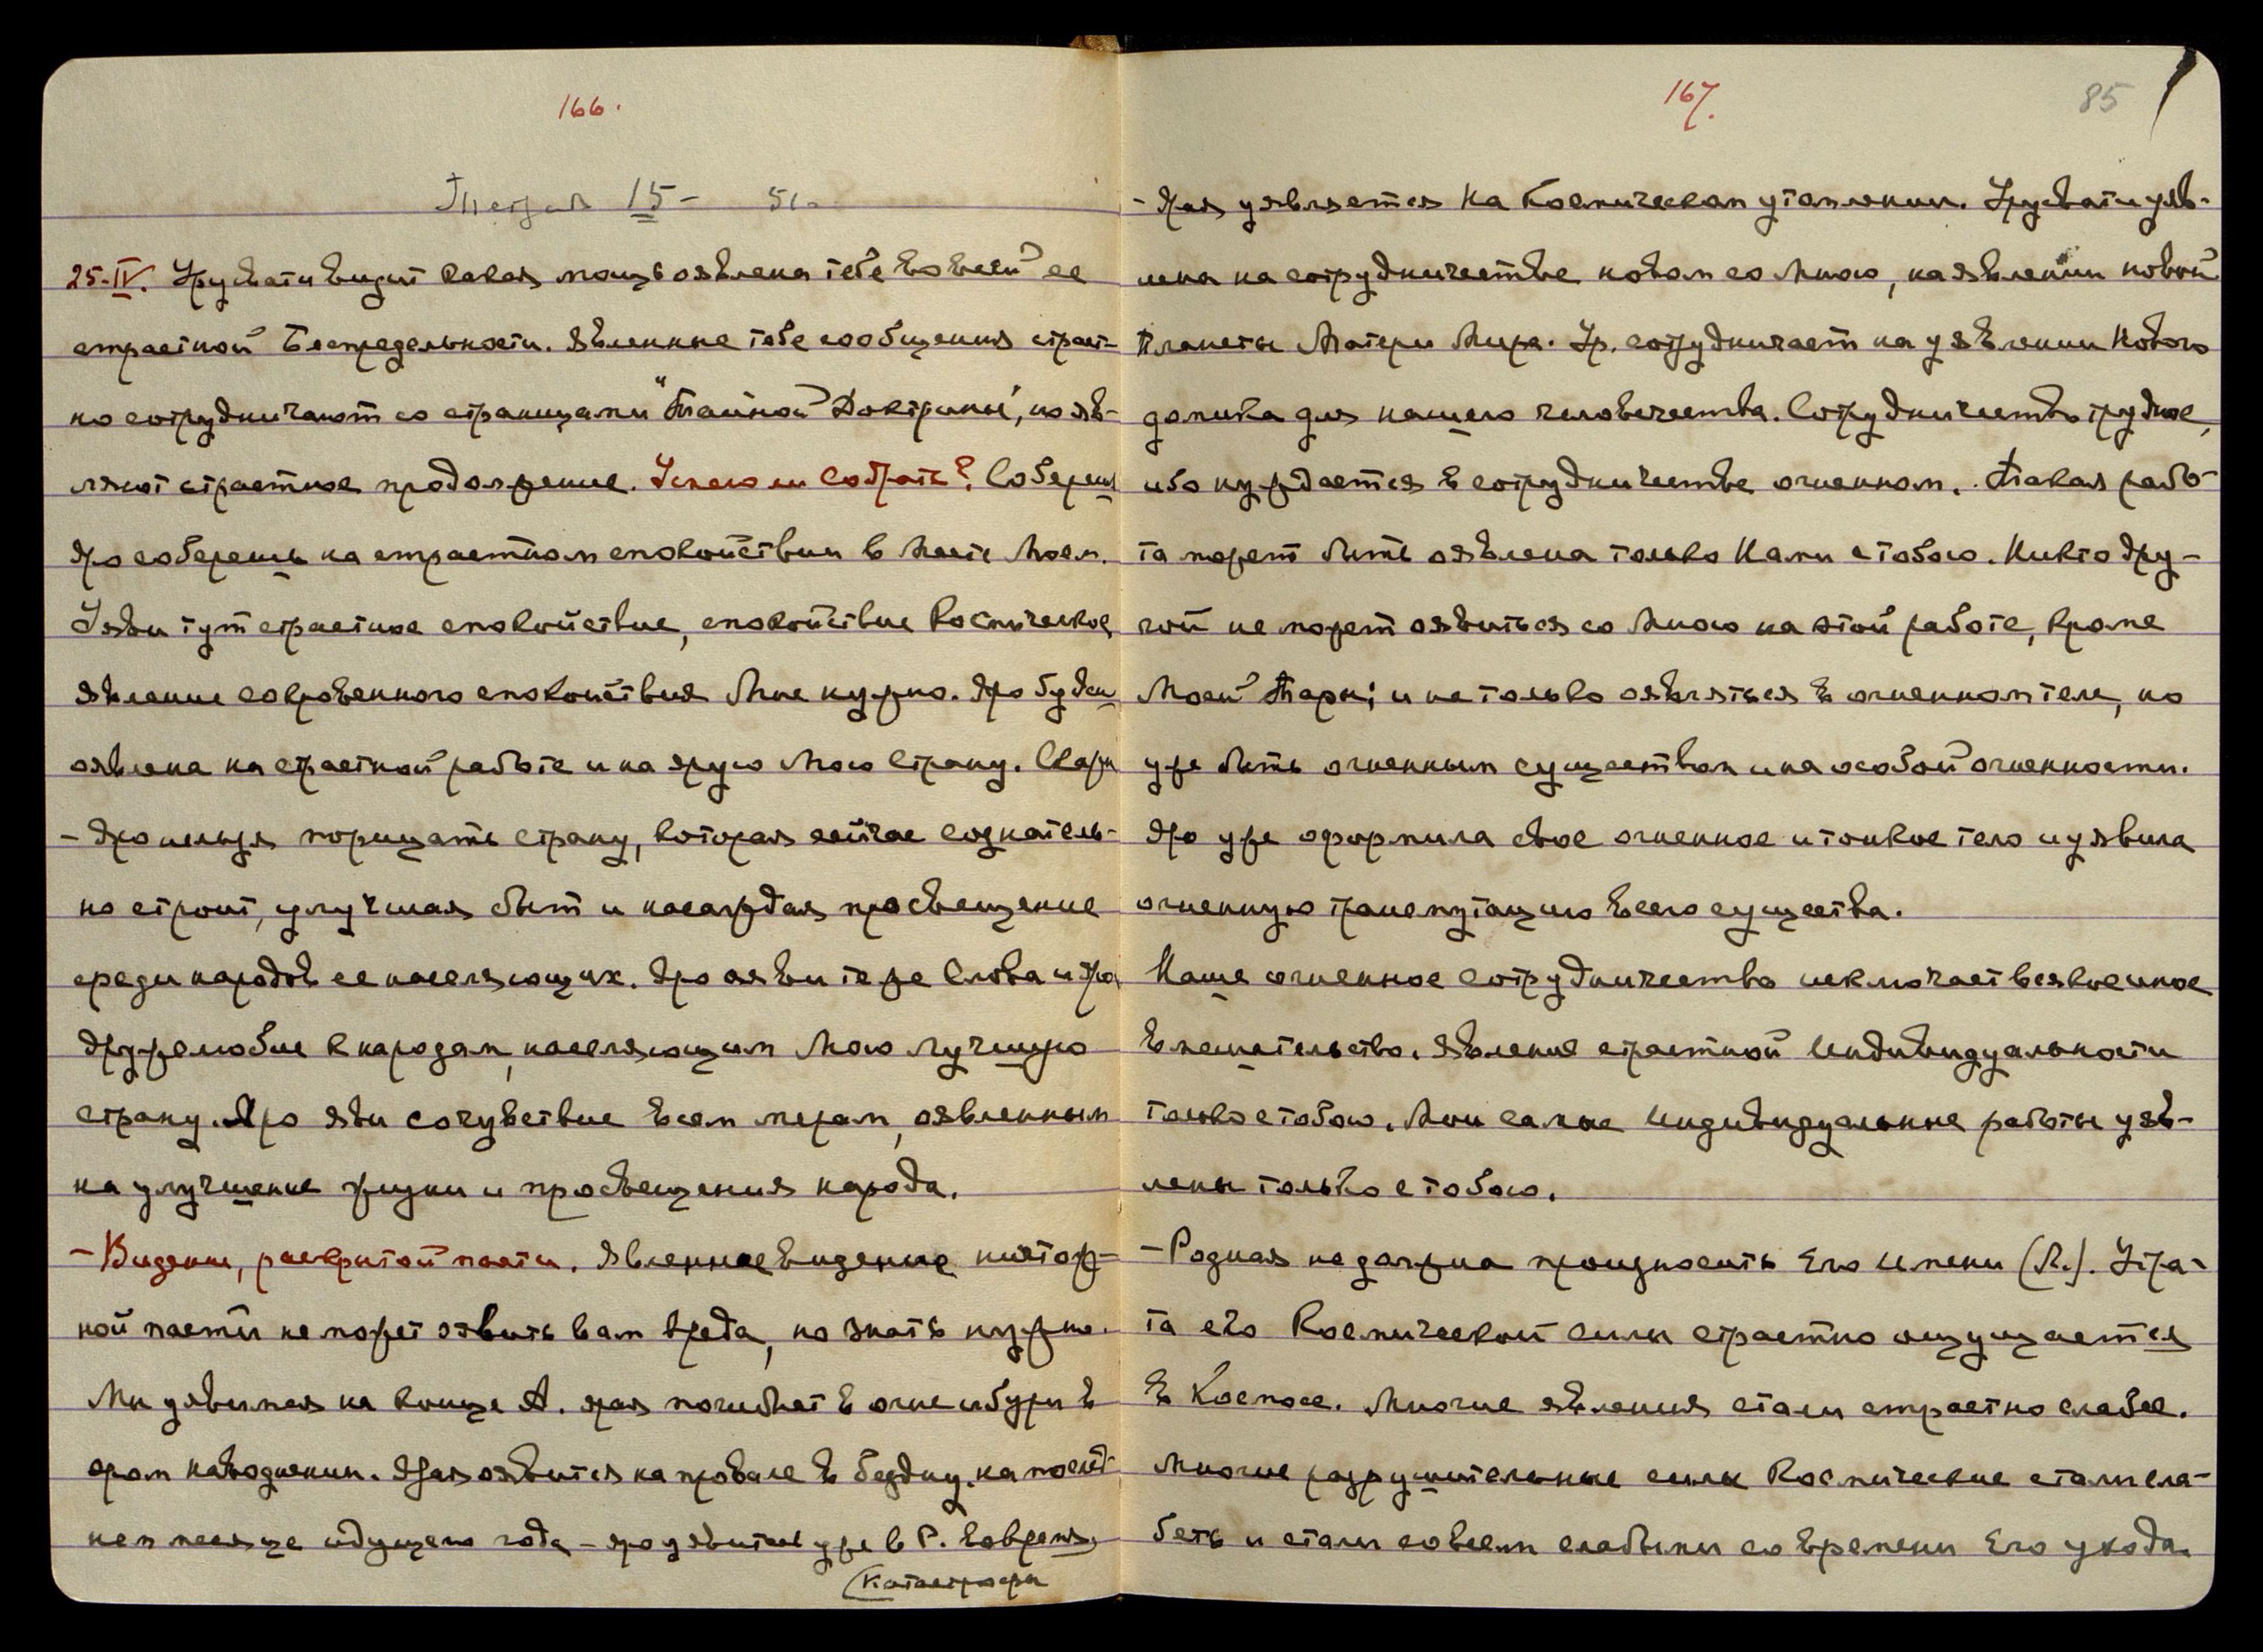 166.
Тетрадь 15 - 51.
25-IV. Урусвати видит какая мощь оявлена тебе во всей ее
страстной Беспредельности. Явленные тебе сообщения страст-
но сотрудничают со страницами "Тайной Доктрины", но яв-
ляют страстное продолжение. Успею ли собрать? Соберешь
Яро соберешь на страстном спокойствии в Месте Моем.
Уяви тут страстное спокойствие, спокойствие Космическое,
явление сокровенного спокойствия Мне нужно. Яро будешь
оявлена на страстной работе и на ярую Мою Страну. Скажи
- Яро нельзя порицать страну, которая сейчас сознатель-
но строит, улучшая быт и насаждая просвещение
среди народов ее населяющих. Яро ояви те же Слова и яро
дружелюбие к народам, населяющим Мою лучшую
страну. Яро яви сочувствие всем мерам, оявленным
на улучшение жизни и просвещения народа.
- Видение, раскрытой пасти. Явленное видение ничтож-
ной пасти не может оявить вам вреда, но знать нужно.
Мы уявимся на конце А. ярая погибнет в огне и буре в
яром наводнении. Ярая оявится на провале в бездну, на послед-
нем месяце идущего года - яро уявится уже в Р. во время
(Катастрофы
167. 85
- Ярая уявляется на Космическом утомлении. Урусвати уяв-
лена на сотрудничестве новом со Мною, на явлении новой
планеты Матери Мира. Ур. сотрудничает на уявлении Нового
домика для нашего человечества. Сотрудничество трудное,
ибо нуждается в сотрудничестве огненном. Такая рабо-
та может быть оявлена только Нами с тобою. Никто дру-
гой не может оявиться со Мною на этой работе, кроме
Моей Тары; и не только оявляться в огненном теле, но
уже быть огненным существом и на особой огненности.
Яро уже оформила свое огненное и тонкое тело и уявила
огненную трансмутацию всего существа.
Наше огненное сотрудничество исключает всякое иное
вмешательство. Явление страстной Индивидуальности
только с тобою. Мои самые Индивидуальные работы уяв-
лены только с тобою.
- Родная не должна произносить Его имени (Л.). Утра-
та его Космической силы страстно ощущается
в Космосе. Многие явления стали страстно слабее.
Многие разрушительные силы Космические стали сла-
беть и стали совсем слабыми со времени Его ухода.